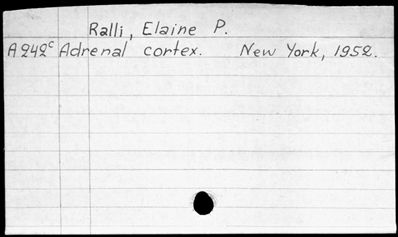 Ralli, Elaine P.
A242c Adrenal cortex. New York, 1952.